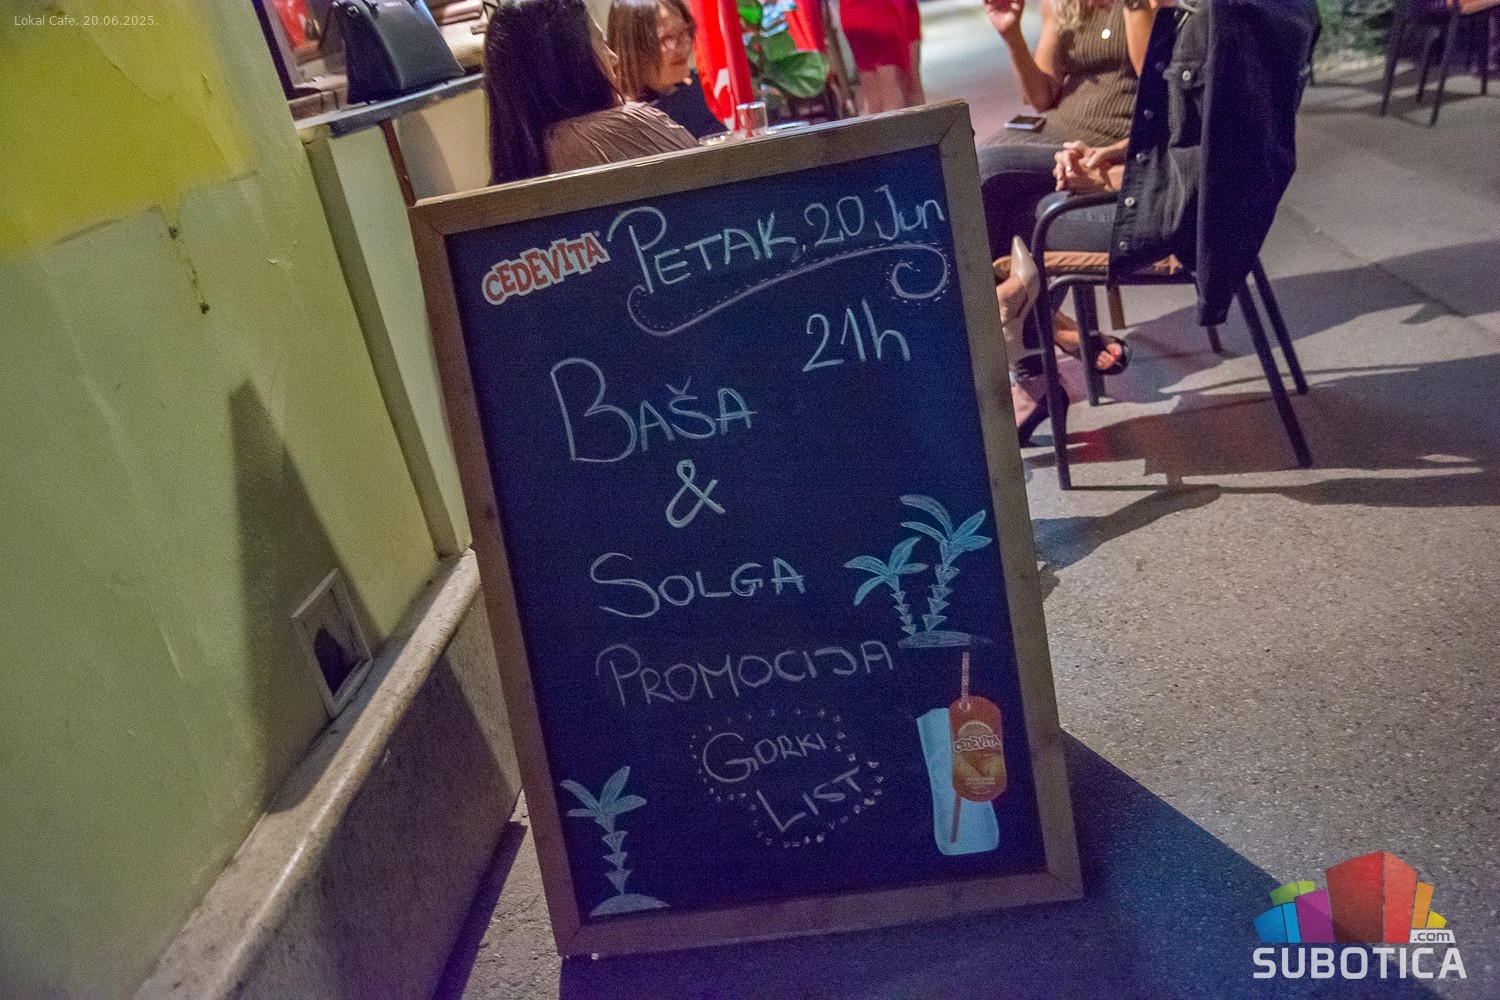 Lokal Cafe, 20.06.2025.
CEDEVITA
PETAK, 20 Jun
21h
BAŠA
&
SOLGA
PROMOCIJA
GORKI
LIST
CEDEVITA
SUBOTICA.com